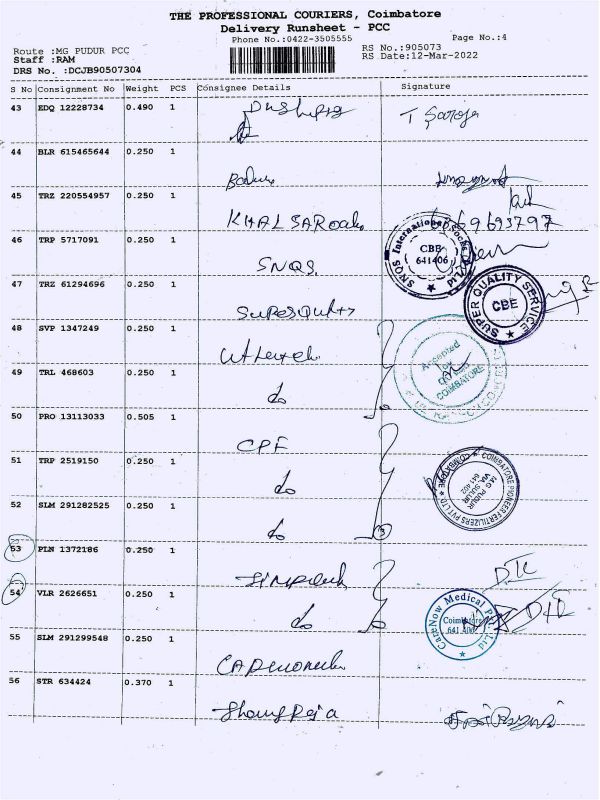 THE PROFESSIONAL COURIERS, Coimbatore
Delivery Runsheet - PCC
Phone No.:0422-3505555
Page No.:4
Route :MG PUDUR PCC
RS No.:905073
Staff :RAM
RS Date:12-Mar-2022
DRS No. :DCJB90507304
S No Consignment No Weight PCS Consignee Details Signature
43 EDQ 12228734 0.490 1
T Saroja
44 BLR 615465644 0.250 1
45 TRZ 220554957 0.250 1
46 TRP 5717091 0.250 1
SNQS International Socks
CBE
641406
SNQS
47 TRZ 61294696 0.250 1
SUPER QUALITY SERVICE
CBE
48 SVP 1347249 0.250 1
Accepted
COIMBATORE
49 TRL 468603 0.250 1
do
50 PRO 13113033 0.505 1
CPF
51 TRP 2519150 0.250 1
COIMBATORE PIONEER FERTILIZERS PVT LTD
M.G. PUDUR
VIA SULUR
641 402
do
52 SLM 291282525 0.250 1
do
3
53 PLN 1372186 0.250 1
54 VLR 2626651 0.250 1
CareNow Medical P
Coimbatore
641 407
do
55 SLM 291299548 0.250 1
56 STR 634424 0.370 1